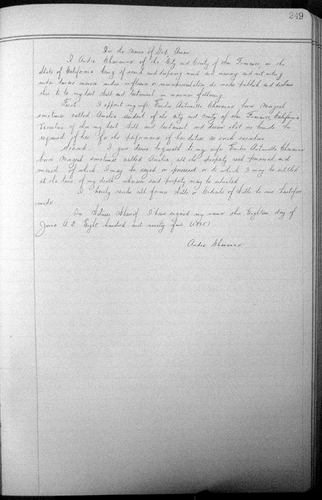 249
In the Name of God, Amen.
I Andre Chavanne of the City and County of San Francisco, in the
State of California being of sound and disposing mind and memory and not acting
under duress menace undue influence or misrepresentation do make publish and declare
this to be my last Will and Testament in manner following.
First. I appoint my wife Antoinette Chavanne born
sometimes called Amelia resident of the City and County of San Francisco, California
Executrix of this my last Will and Testament, and desire that no bonds be
required of her for the performance of her duties as such executrix
Second. I give devise bequeath to my wife Antoinette Chavanne
born sometimes called Amelia, all the property real personal and
mixed of which I may be seized or possessed or to which I may be entitled
at the time of my death wherever said property may be situated
I hereby revoke all former Wills & Codicils of Wills by me heretofore
made.
In Witness Whereof, I have signed my name this Eighteen day of
June A.D. Eight hundred and ninety
Andre Chavanne